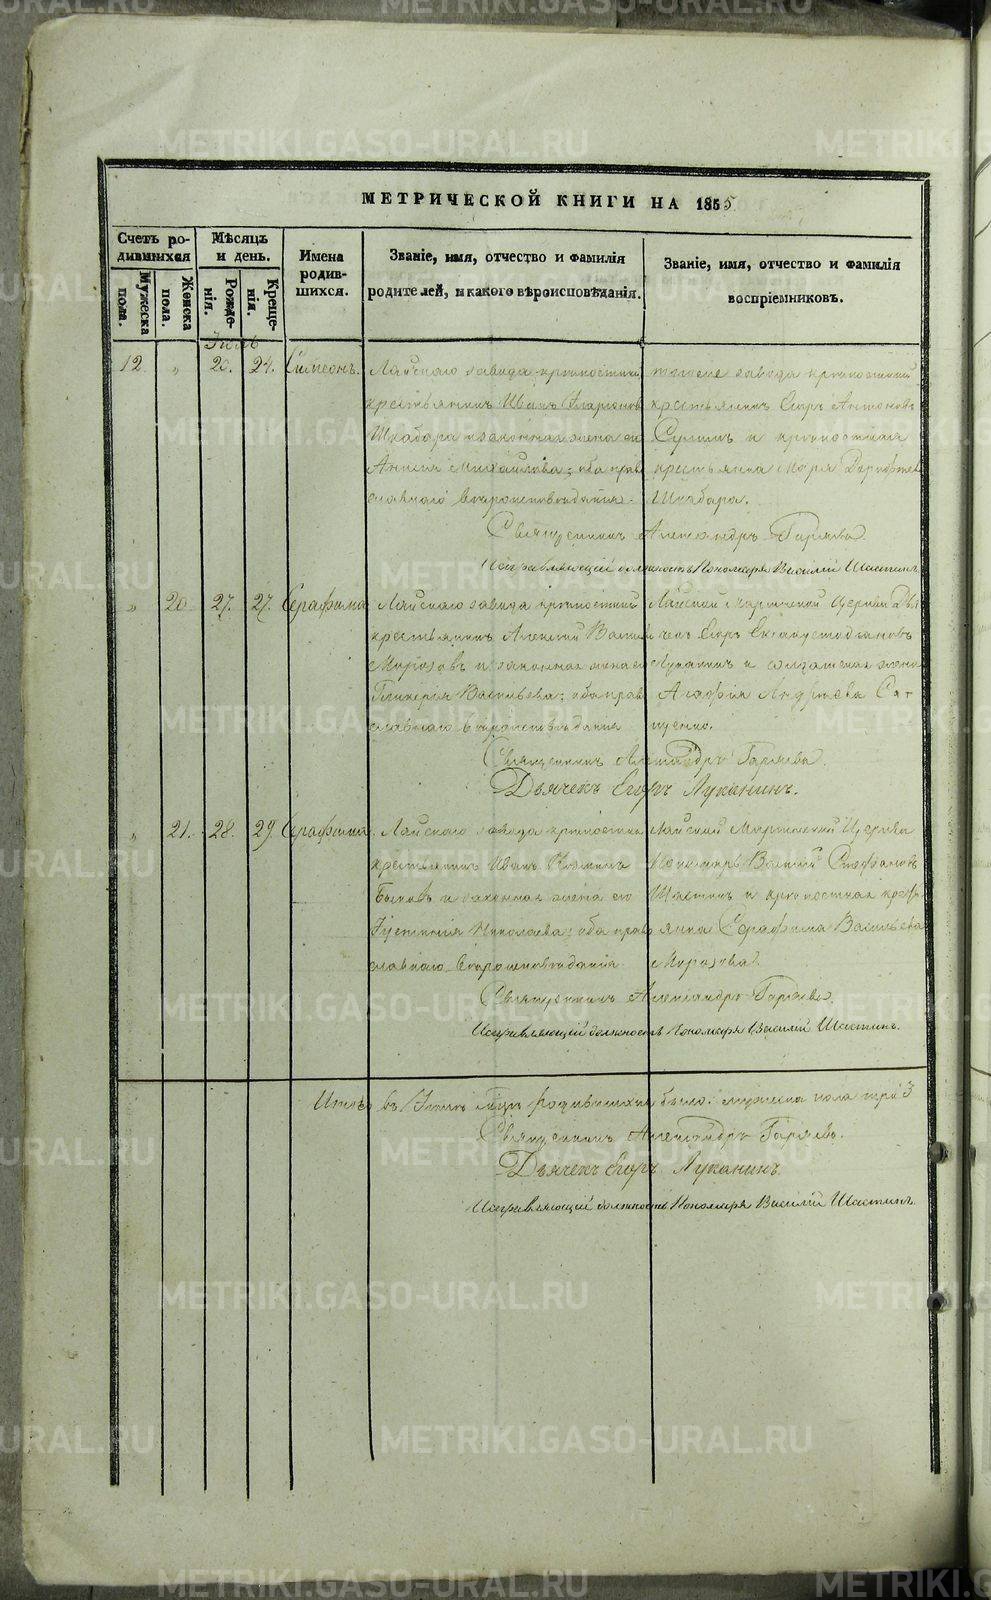 МЕТРИЧЕСКОЙ КНИГИ НА 1855
Счетъ ро-
дившихся
Мѣсяцъ
и день.
Имена
родив-
шихся.
Званіе, имя, отчество и фамилія
родителей, и какого вѣроисповѣданія.
Званіе, имя, отчество и фамилія
воспріемниковъ.
Мужеска
пола.
Женска
пола.
Рожде-
нія.
Креще-
нія.
12 " 20. 24. Симеонъ. Лайскаго завода крѣпостный
крестьянинъ Иванъ Иларіоновъ
Шкабара и законная жена его
Михайлова; оба прав
славнаго вѣроисповѣданія.
тогоже завода крѣпостный
крестьянинъ Егоръ Антоновъ
и крѣпостная
Марья
Шкабара.
Священникъ Александръ Гаряевъ
Исправляющій должность Пономаря Василій Шастинъ
" 20. 27. 27. Серафима Лайскаго завода крѣпостный
крестьянинъ Алексѣй Васильевъ
Морозовъ и законная жена его
Гликерія Васильева; оба прав
славнаго вѣроисповѣданія
Лайской Церкви Дья
чекъ Егоръ
Луканинъ и солдатская жена
Агафія Андреева
Священникъ Александръ Гаряевъ.
Дьячекъ Егоръ Луканинъ.
" 21. 28. 29 Серафима. Лайскаго завода крѣпостный
крестьянинъ Иванъ
Быковъ и законная жена его
Николаева; оба право
славнаго вѣроисповѣданія
Лайской Церкви
Пономарь Василій Стефановъ
Шастинъ и крѣпостная кресть
янка Серафима Васильева
Морозова.
Священникъ Александръ Гаряевъ.
Исправляющій должность Пономаря Василій Шастинъ.
Итого въ родившихся было: мужеска пола три 3
Священникъ Александръ Гаряевъ.
Дьячекъ Егоръ Луканинъ.
Исправляющій должность Пономаря Василій Шастинъ.
METRIKI.GASO-URAL.RU